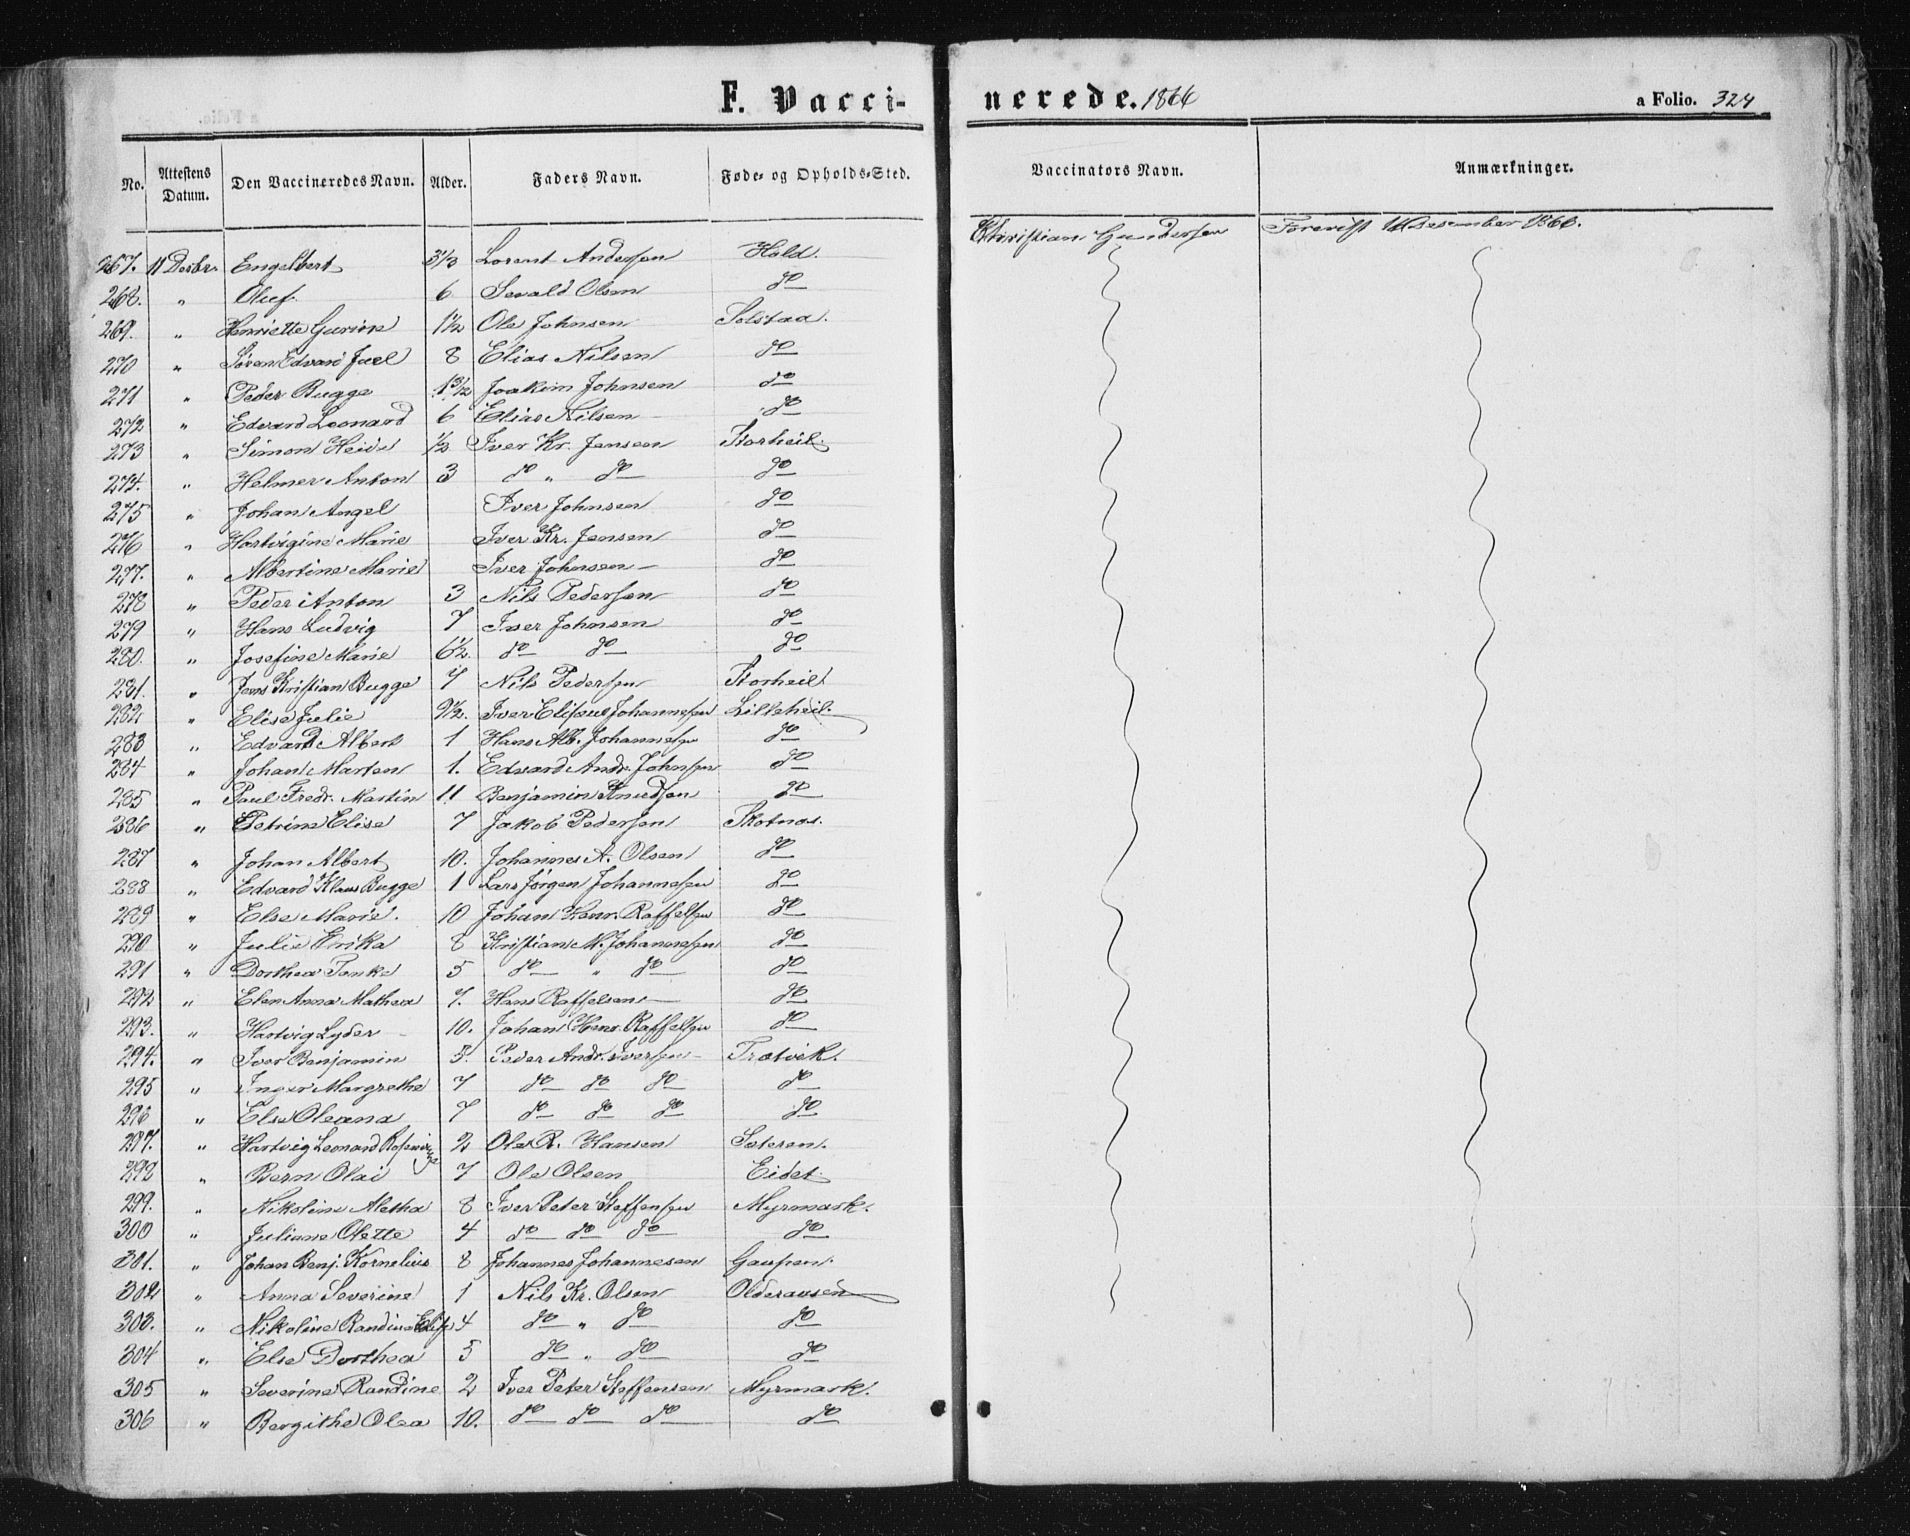 F. Vacci-
nerede. 1866
a Folio. 324
No. Attestens Datum. Den Vaccineredes Navn. Alder. Faders Navn. Føde- og Opholds-Sted. Vaccinators Navn. Anmærkninger.
267. 11 Desbr. Engelbert 3 1/3 Lorent Andersen Hold. Christian Gundersen Forevist 11 Desember 1866.
268. " Oluf. 6 Sevald Olsen do
269. " Henriette 1 1/2 Ole Johnsen Solstad.
270 " Søren Edvard Juel 8 Elias Nilsen do
271 " Peder Bugge Joakim Johnsen do
272 " Edvard Leonard 6 Elias Nilsen do
273 " Simon Heide 1/2 Iver Kr. Jensen Storheil.
274. " Helmer Anton 3 do " do do
275 " Johan Angel Iver Johnsen do
276 " Hartvigine Marie Iver Kr. Jensen do
277. " Albertine Marie Iver Johnsen – do
278 " Peder Anton 3 Nils Pedersen do
279 " Hans Ludvig 7 Iver Johnsen do
280. " Josefine Marie 6 1/2. do do do
281. " Jens Kristian Bugge 7 Nils Pedersen Storheil
282 " Elise Julie 9 1/2. Iver Eliseus Johannesen Lilleheil.
283 " Edvard Albert 1 Hans Alb. Johannesen do
284 " Johan Marten 1. Edvard Andr. Johnsen do
285 " Paul Fredr. Martin 11 Benjamin Knudsen do
286 " Petrine Elise 7 Jakob Pedersen Skotnes.
287 " Johan Albert 10. Johannes A. Olsen do
288 " Edvard Klaus Bugge 1 Lars Jørgen Johannesen do
289 " Else Marie. 10 Johan Henr. Raffelsen do
290 " Julie Erika 8 Kristian M. Johannesen do
291 " Dorthea Tonke 5 do " do do
292 " Elen Anna Mathea 7. Hans Raffelsen – do
293. " Hartvig Lyder 10. Johan Henr. Raffelsen do
294. " Iver Benjamin 5. Peder Andr. Iversen – Trætvik.
295 " Inger Margrethe 7 do do do do
296 " Else Oleana 7 do do do do
297. " Hartvig Leonard Rosinvinge 2 Ole R. Hansen Sæteren.
298 " Bern Olai 7 Ole Olsen Eidet.
299. " Nikoline Aletha 8 Iver Peter Steffensen Myrmark.
300 " Juliane Olette 4 do do do do
301. " Johan Benj. Kornelius 8 Johannes Johannesen Gaupen.
302 " Anna Severine 1 Nils Kr. Olsen Olderausen
303. " Nikoline Randine Elise 4 do " do do
304 " Else Dorthea 5 do " do do
305 " Severine Randine 2 Iver Peter Steffensen Myrmark.
306 " Bergithe Olea 10. do do do do